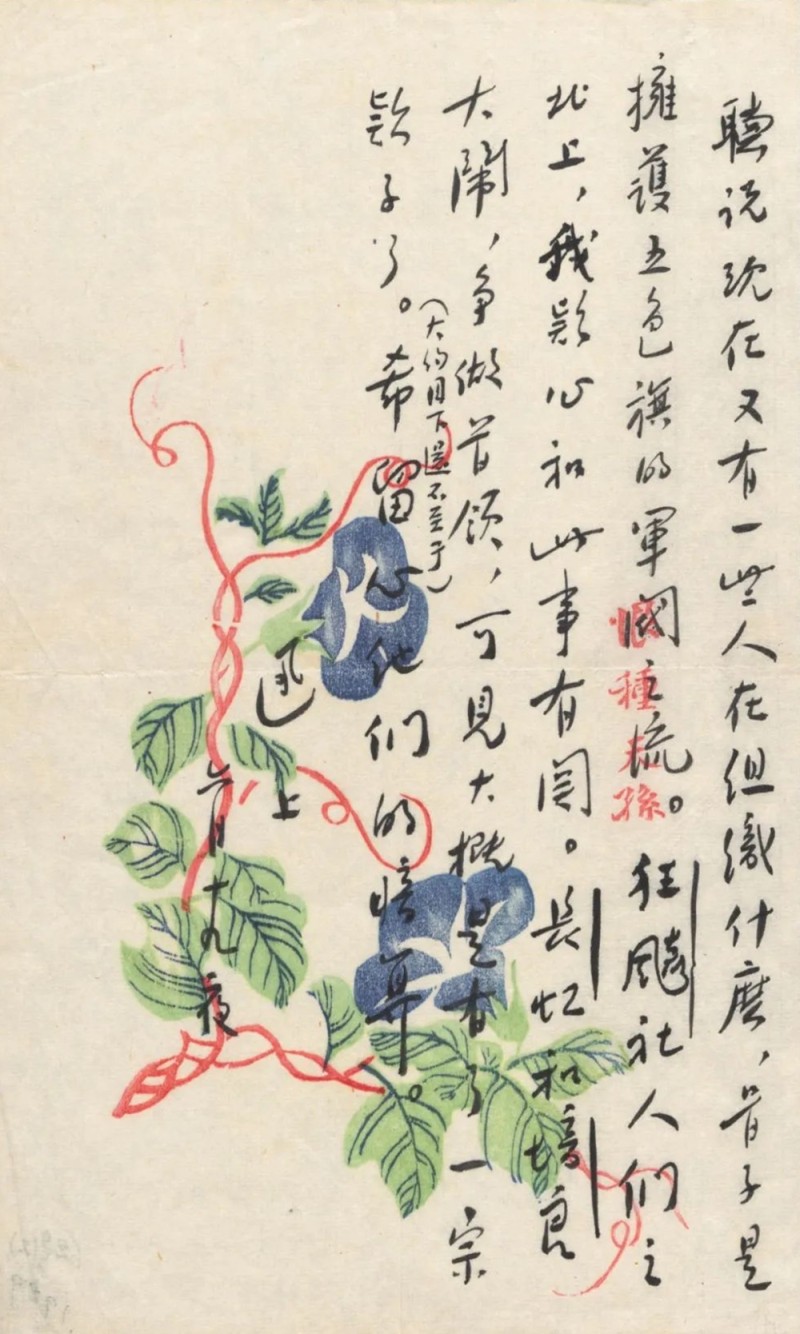 聽说现在又有一些人在组織什麽，骨子是
擁護五色旗的軍閥之流。狂飈社人们之
北上，我疑心和此事有関。長虹和培良
大鬧，争做首领，可見大概是有了一宗
（大约目下還不至于）
款子了。希留心他们的暗算。
迅
上
六月十九夜